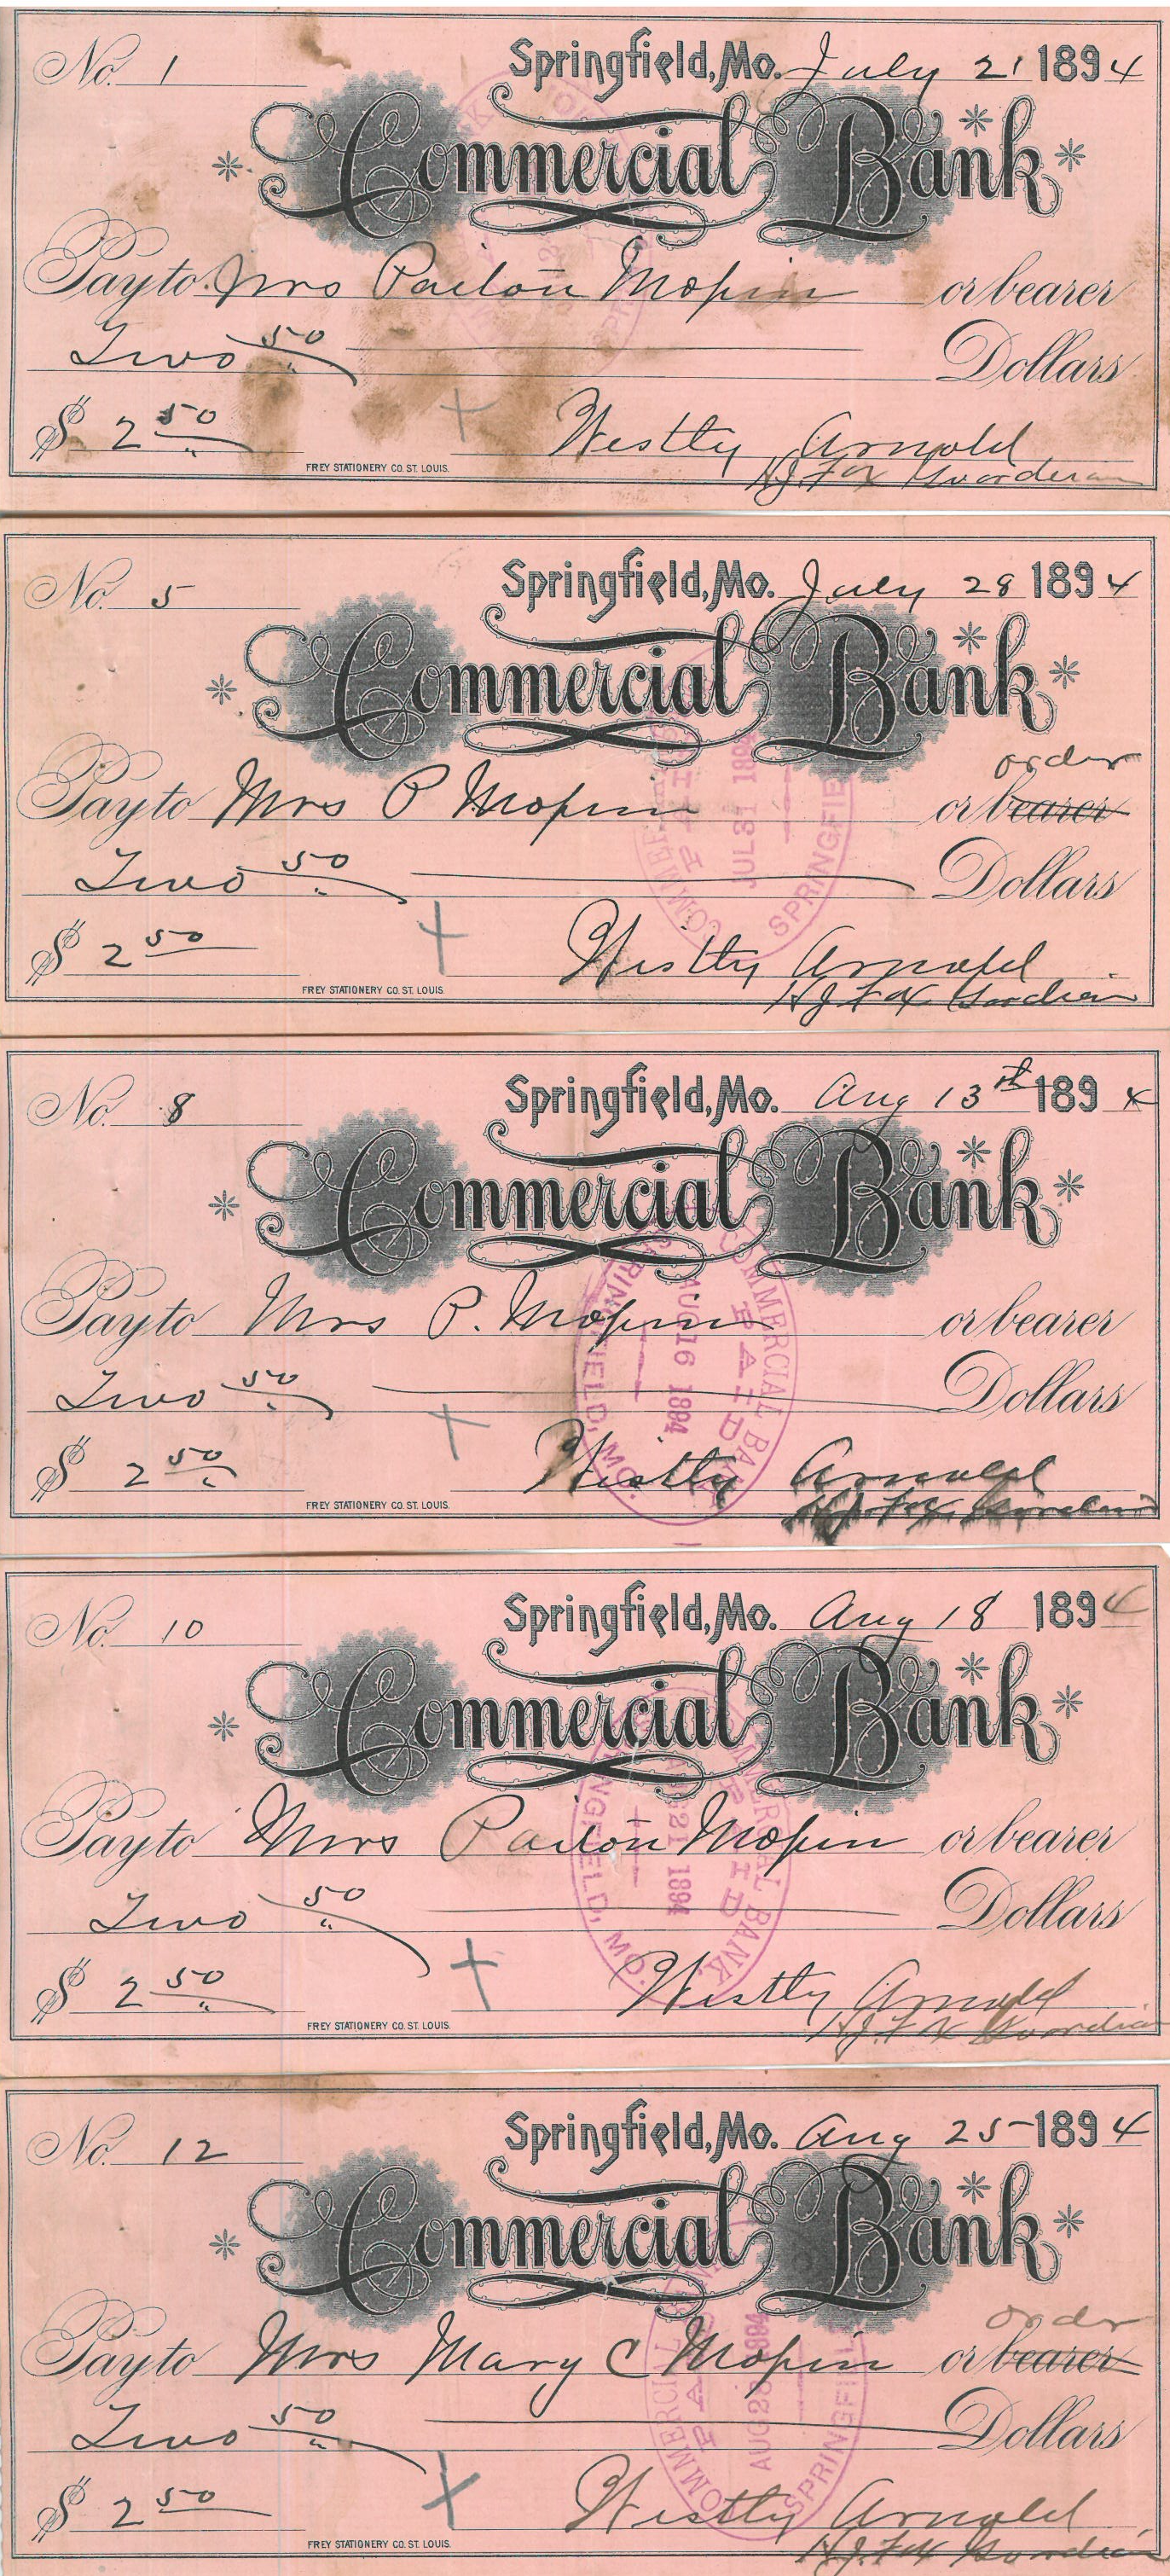 No. 1 Springfield, Mo. July 21 1894
Commercial Bank
Pay to Mrs Pailon Mopin or bearer
Two 50/" Dollars
$ 2 50/"
Westly Arnold
FREY STATIONERY CO. ST. LOUIS.
H J Fox Guorderan
No. 5 Springfield, Mo. July 28 1894
Commercial Bank
order
Pay to Mrs P Mopin or bearer
COMMERCIAL PAID JUL 31 1894 SPRINGFIE
Two 50/" Dollars
$ 2 50
Westly Arnold
FREY STATIONERY CO. ST. LOUIS.
H J Fox Gordian
No. 8 Springfield, Mo. Aug 13th 1894
Commercial Bank
Pay to Mrs P. Mopin or bearer
COMMERCIAL BANK PAID AUG 16 1894 SPRINGFIELD, MO.
Two 50 Dollars
$ 2 50/"
Westly Arnold
FREY STATIONERY CO. ST. LOUIS.
H. J. Fox
No. 10 Springfield, Mo. Aug 18 1894
Commercial Bank
Pay to Mrs Pailon Mopin or bearer
COMMERCIAL BANK. PAID AUG 21 1894 SPRINGFIELD, MO.
Two 50/" Dollars
$ 2 50/"
Westly Arnold
FREY STATIONERY CO. ST. LOUIS.
H J Fox Guordian
No. 12 Springfield, Mo. Aug 25 1894
Commercial Bank
order
Pay to Mrs Mary C Mopin or bearer
COMMERCIAL PAID AUG 28 1894 SPRINGFIEL
Two 50/" Dollars
$ 2 50
Westly Arnold
FREY STATIONERY CO. ST. LOUIS.
H J Fox Gordian